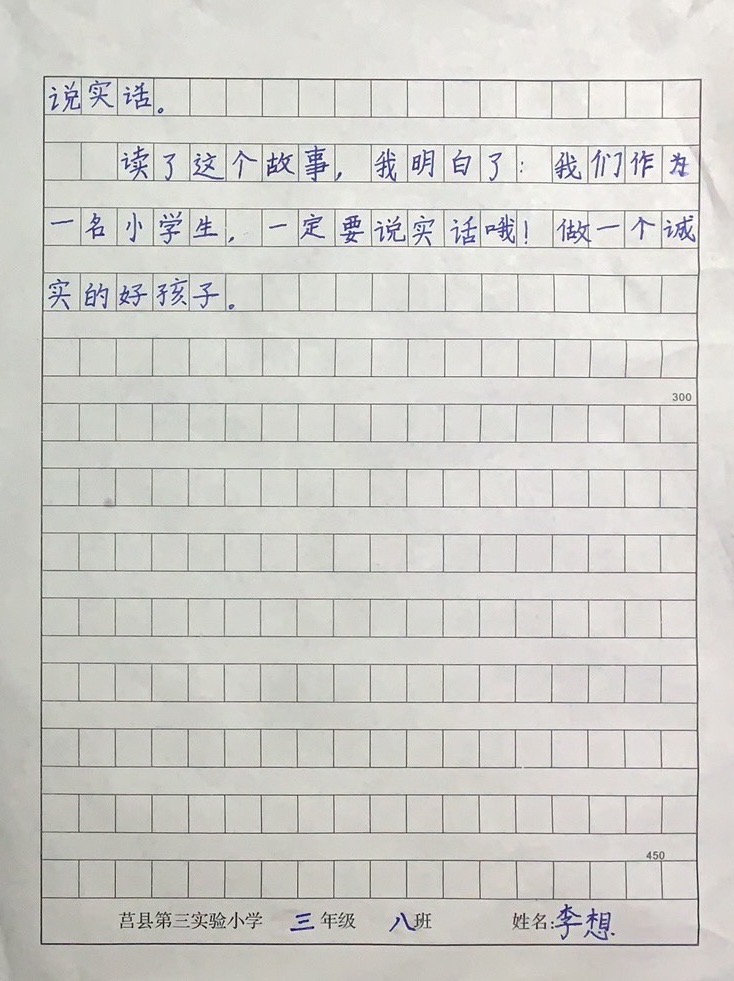 说实话。
读了这个故事,我明白了:我们作为
一名小学生,一定要说实话哦!做一个诚
实的好孩子。
300
450
莒县第三实验小学 三年级 八班 姓名:李想